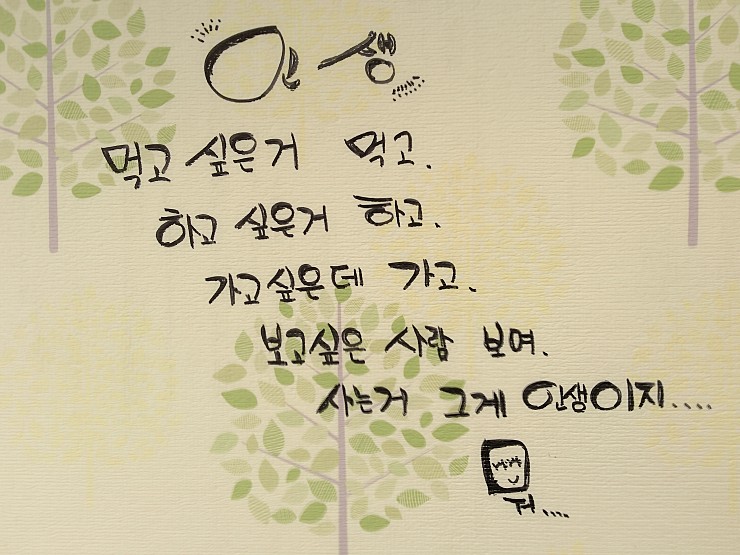 인생
먹고 싶은거 먹고.
하고 싶은거 하고.
가고싶은데 가고.
보고싶은 사람 보며.
사는거 그게 인생이지....
뭐....